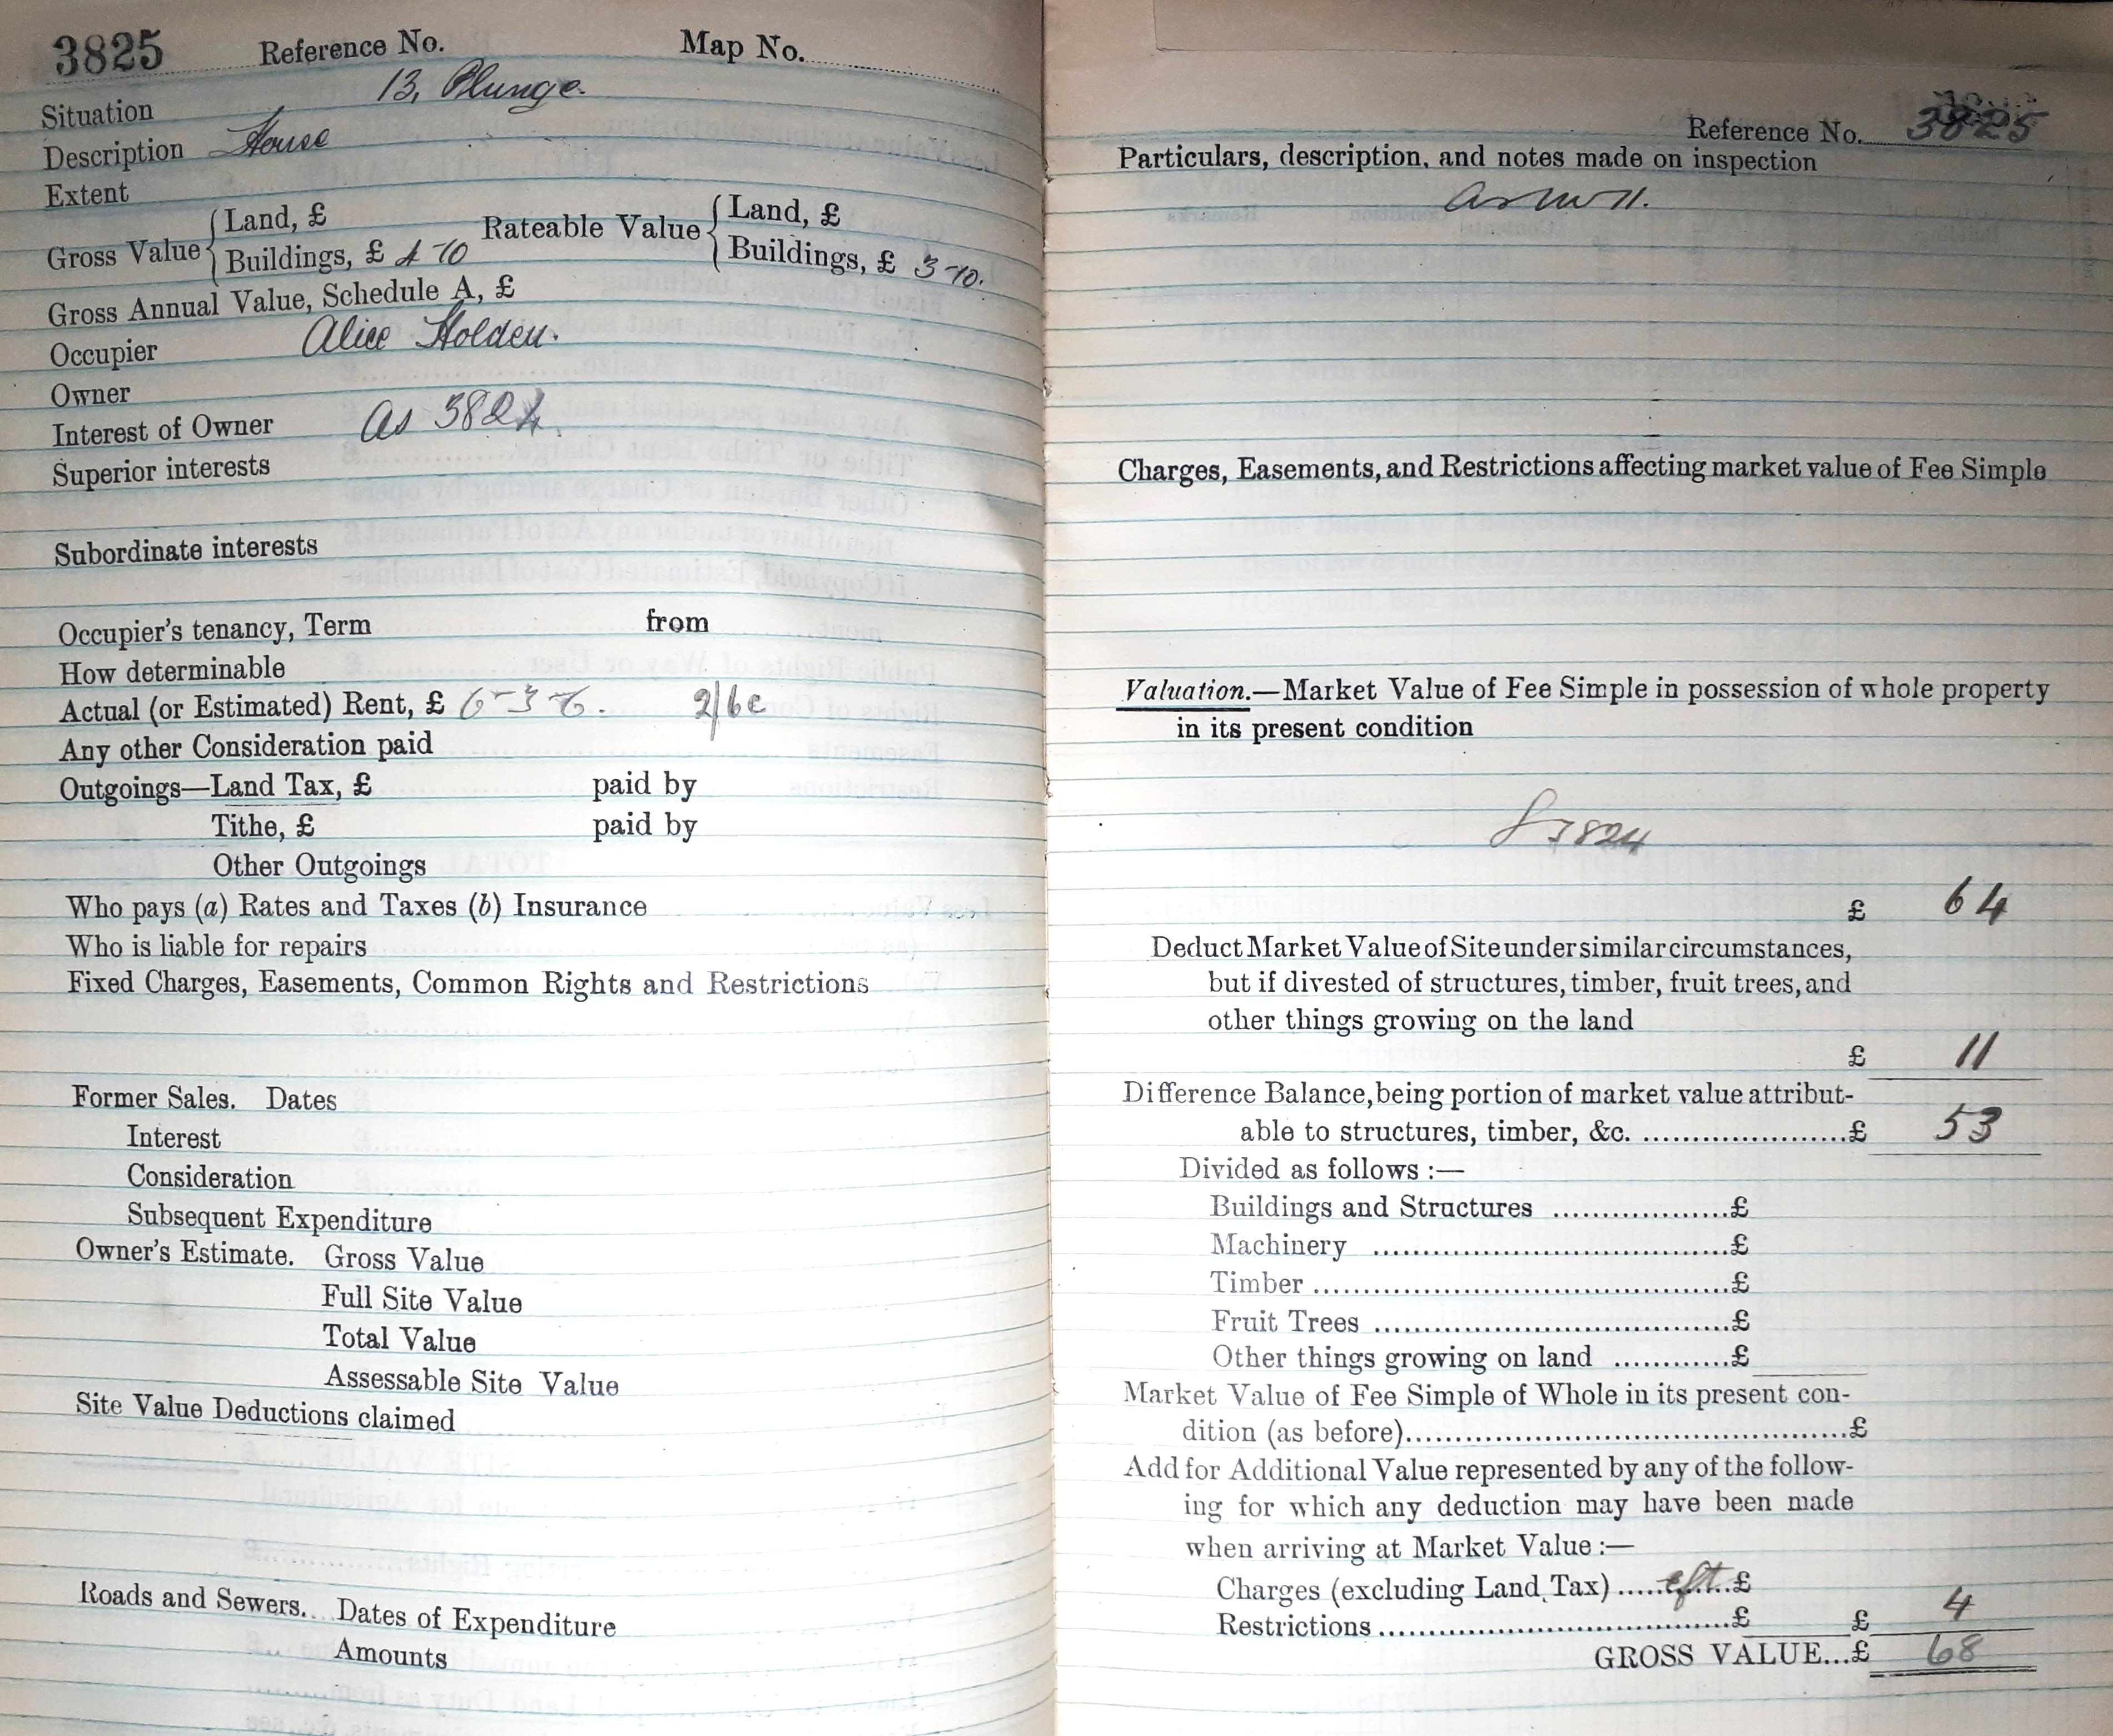 3825 Reference No. Map No.
Situation 13, Plunge.
Description House
Extent
Gross Value { Land, £ Rateable Value { Land, £
Buildings, £ 4 10 Buildings, £ 3-10.
Gross Annual Value, Schedule A, £
Occupier Alice Holden.
Owner
Interest of Owner As 3824.
Superior interests
Subordinate interests
Occupier's tenancy, Term from
How determinable
Actual (or Estimated) Rent, £ 6-3 6. 2/6
Any other Consideration paid
Outgoings—Land Tax, £ paid by
Tithe, £ paid by
Other Outgoings
Who pays (a) Rates and Taxes (b) Insurance
Who is liable for repairs
Fixed Charges, Easements, Common Rights and Restrictions
Former Sales. Dates
Interest
Consideration
Subsequent Expenditure
Owner's Estimate. Gross Value
Full Site Value
Total Value
Assessable Site Value
Site Value Deductions claimed
Roads and Sewers. Dates of Expenditure
Amounts
Reference No. 3825
Particulars, description, and notes made on inspection
as No 11.
Charges, Easements, and Restrictions affecting market value of Fee Simple
Valuation.—Market Value of Fee Simple in possession of whole property
in its present condition
3824
£ 64
Deduct Market Value of Site under similar circumstances,
but if divested of structures, timber, fruit trees, and
other things growing on the land
£ 11
Difference Balance, being portion of market value attribut-
able to structures, timber, &c. ......................£ 53
Divided as follows :—
Buildings and Structures ..................£
Machinery .....................................£
Timber ..........................................£
Fruit Trees .....................................£
Other things growing on land ............£
Market Value of Fee Simple of Whole in its present con-
dition (as before)..............................................£
Add for Additional Value represented by any of the follow-
ing for which any deduction may have been made
when arriving at Market Value :—
Charges (excluding Land Tax) ............£
Restrictions .....................................£ £ 4
GROSS VALUE...£ 68